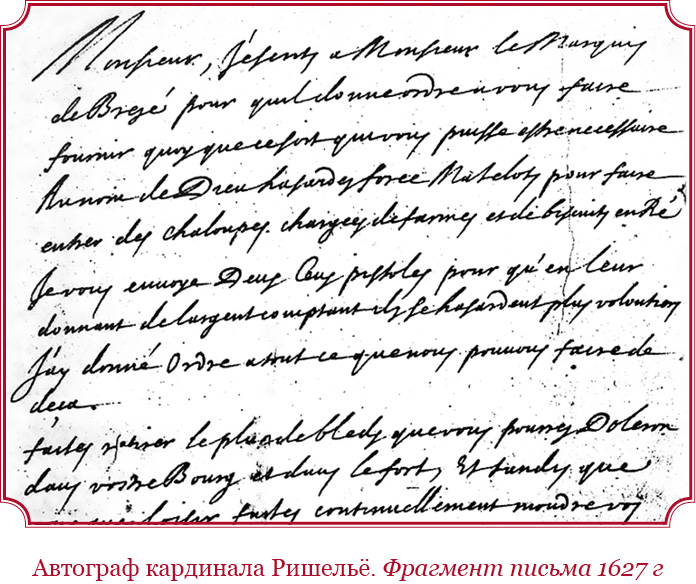 Monsieur, J'escris a Monsieur le Marquis
de Brezé pour quil donne ordre a vous faire
fournir quoy que ce soit qui vous puisse estre necessaire
Au nom de Dieu hasardes force Matelots pour faire
entrer des chaloupes chargees de farines et de biscuits en Ré
Je vous envoye Deux Cens pistoles pour qu'en leur
donnant de largent comptant ils se hasardent plus volontiers
J'ay donné Ordre a tout ce que nous pouvons faire de
deca.
faites retirer le plus de bleds que vous pourres Doleron
dans vostre Bourg et dans le fort, Et tandis que
faites continuellement moudre vos
Автограф кардинала Ришельё. Фрагмент письма 1627 г